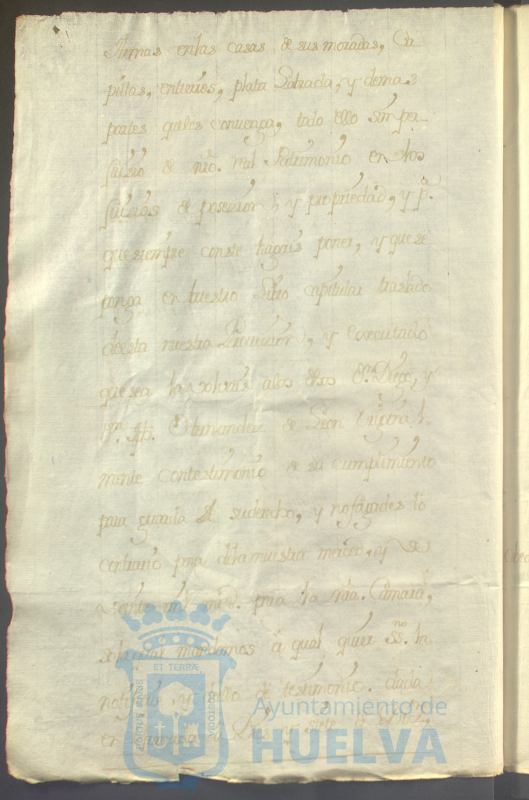 Armas en las casas de sus moradas, Ca
pillas, entierros, plata Labrada, y demas
partes q.e les convenga, todo ello sin per-
juicio de nro. Rl. Patrimonio en los
juicios de posesion, y propiedad, y p.a
que siempre conste hagais poner, y que se
ponga en vuestro Libro capitular traslado
de esta nuestra Provision, y executado
que sea la volvais a los dhos Dn. Diego, y
Dn. Hernandez de Leon original
mente con testimonio de su cumplimiento
para guarda de su derecho, y no fagades lo
contrario pena de la nuestra merced, y de
veinte mil mrs. para la nra. Camara,
mandamos á qual quier ss.no la
notifique, y de ello de testimonio. dada
en Granada y siete de
ET TERRÆ
Ayuntamiento de
HUELVA